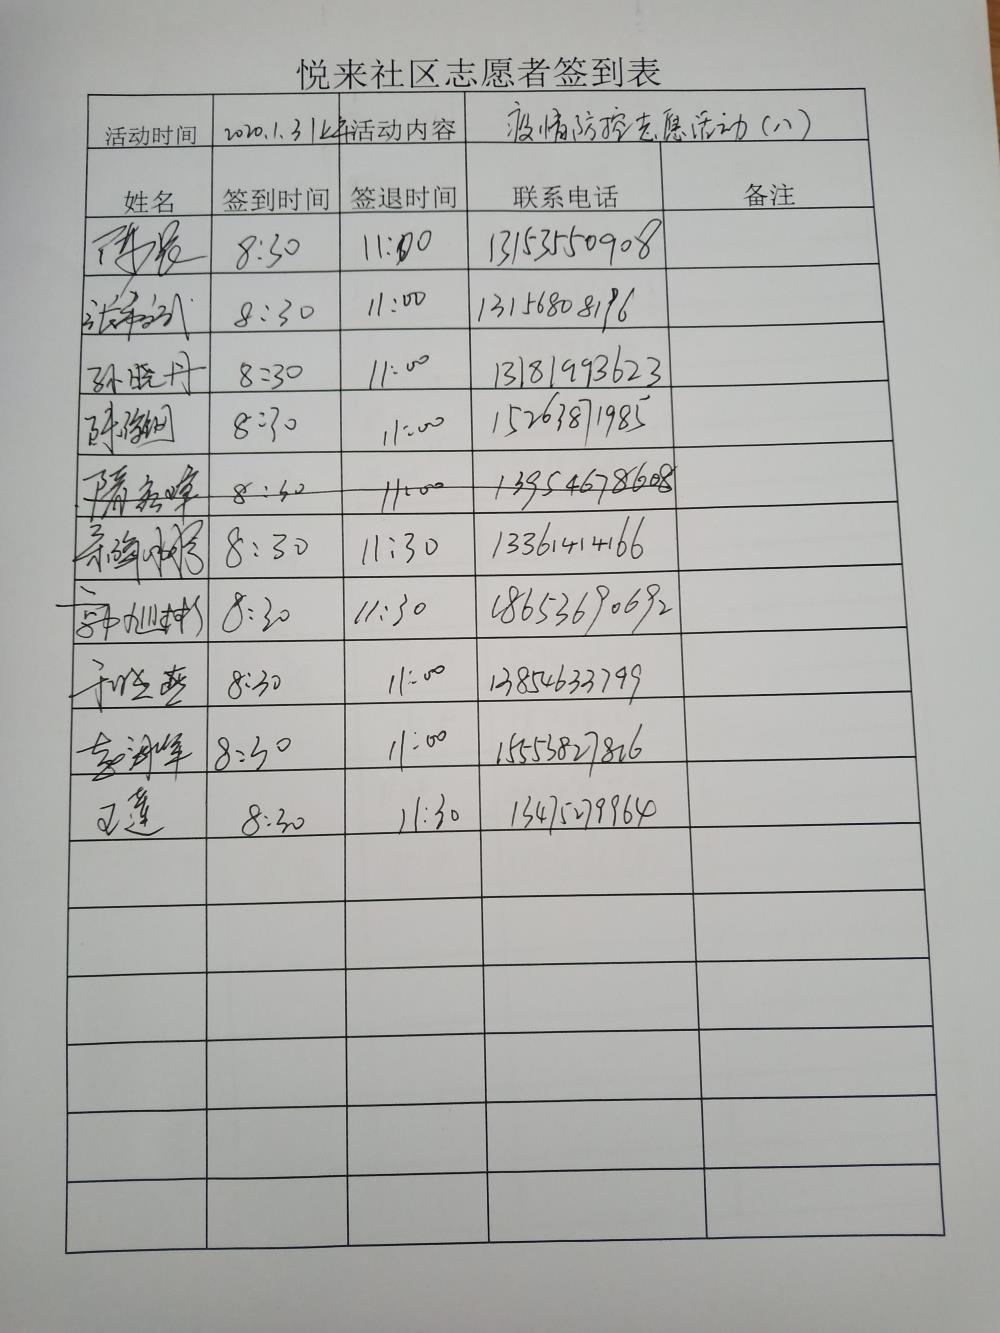 悦来社区志愿者签到表
活动时间 2020.1.31上午 活动内容 疫情防控志愿活动(八)
姓名 签到时间 签退时间 联系电话 备注
8:30 11:00 13153550908
8:30 11:00 13156808196
孙晓丹 8:30 11:00 13181993623
8:30 11:00 15263871985
8:30 11:00 13954678608
8:30 11:30 13361414166
8:30 11:30 18653690692
于晓燕 8:30 11:00 13854633799
8:30 11:00 15553827816
王莲 8:30 11:30 13475279964